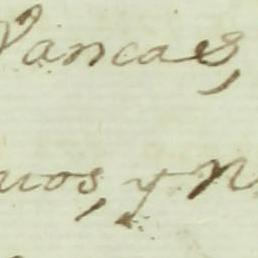 Pancas,
uos, y n